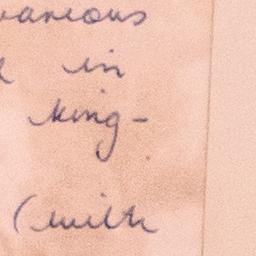 various
in
king-
(with